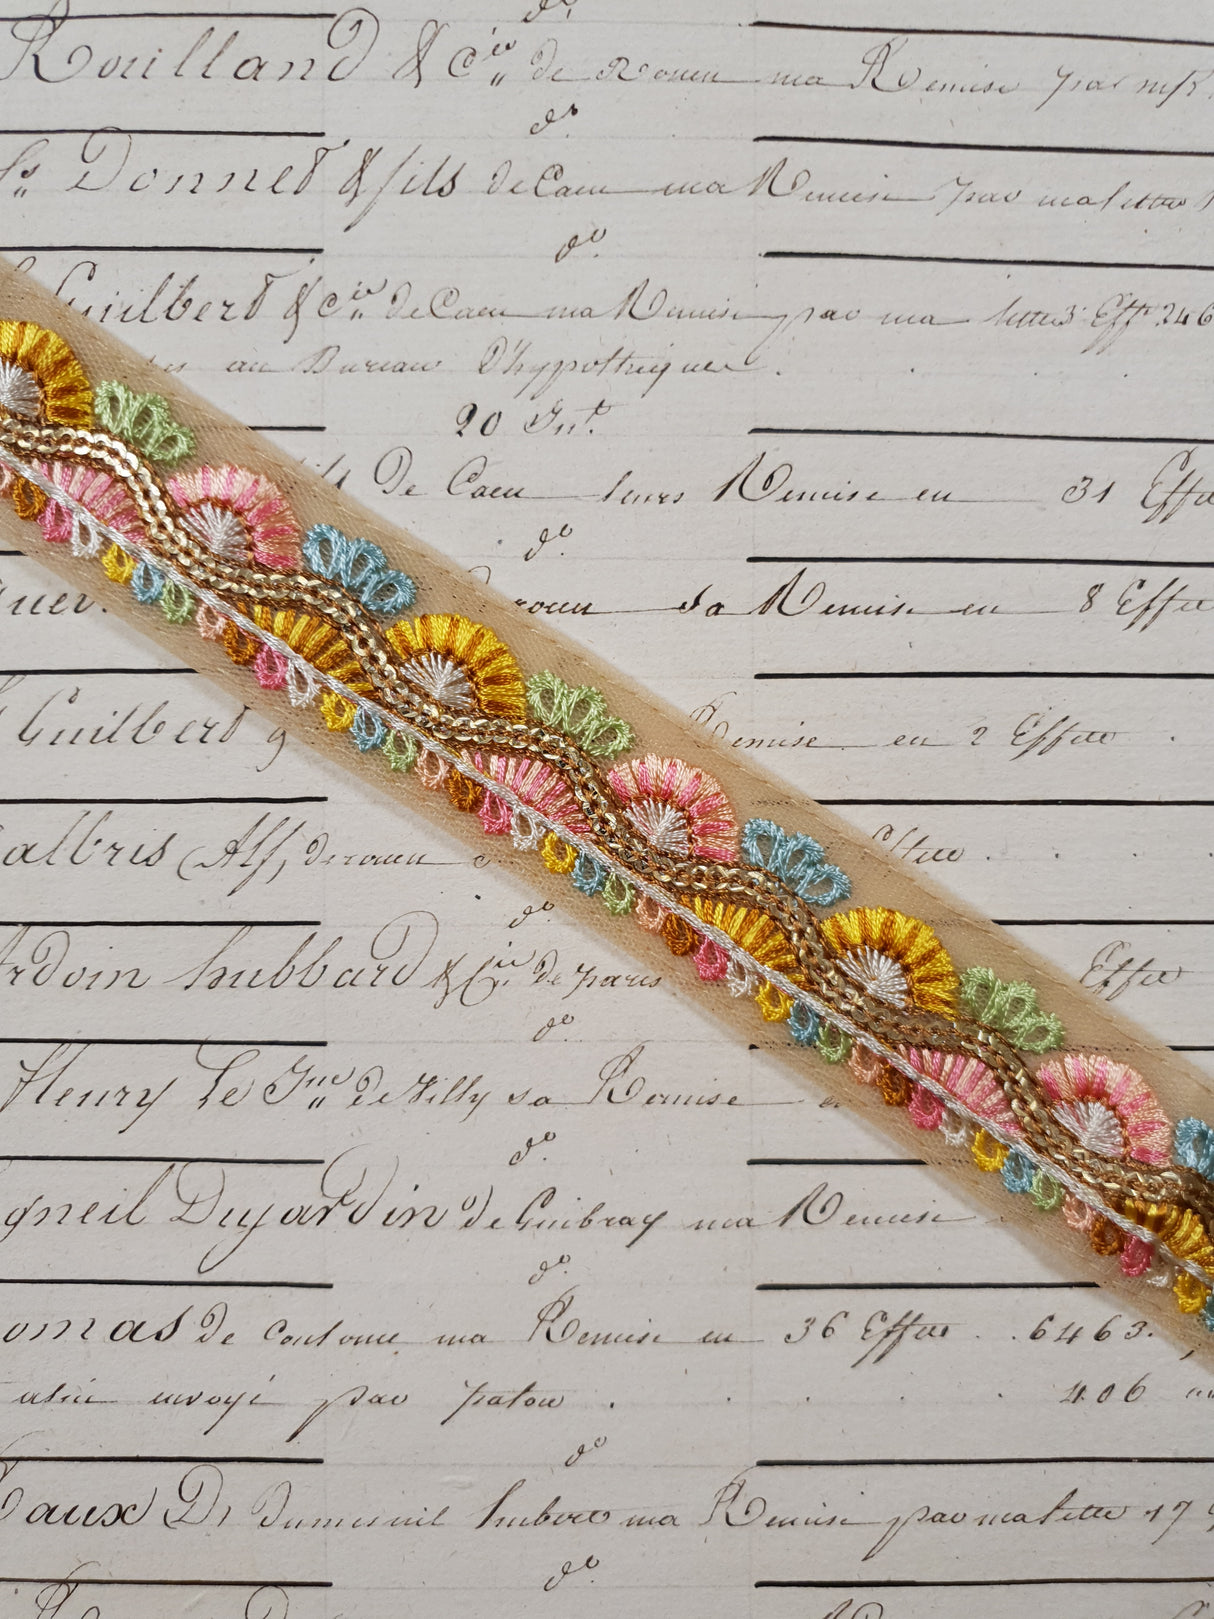 do
Rouilland & Cie de Rouen ma Remise par m/
do
Donnet & fils de Caen ma Remise par ma lettre
do
Guilbert & Cie de Caen ma Remise par ma lettre 3 Effts 246
au Bureau D'hypothèques
20 Jut.
De Caen leurs Remise en 31 Effets
do
Rouen sa Remise en 8 Effets
Guilbert Remise en 2 Effets
albris Alf, de rouen
do
Ardoin hubbard & Cie de paris Effets
do
fleury Le Jne de Tilly sa Remise
do
gneil Dujardin de Guibray ma Remise
do
omas de Coutance ma Remise en 36 Effets 6463.
envoyé par patou 406
do
aux Dr dumesnil hubert ma Remise par ma lettre 17
do